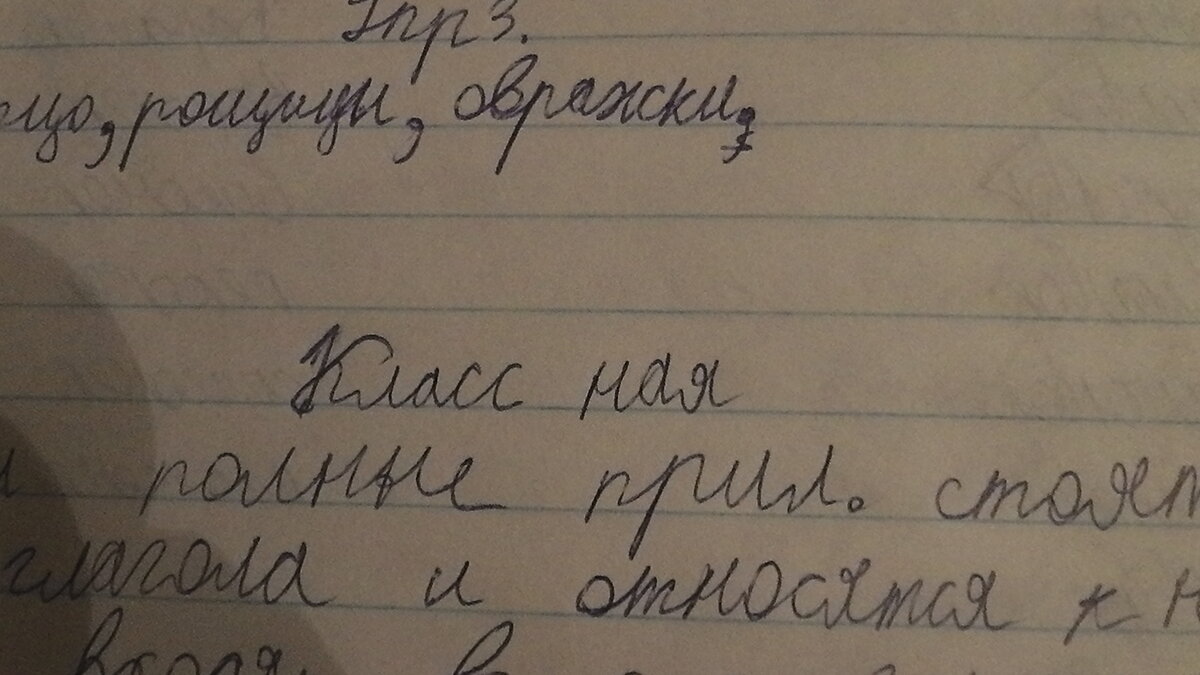 Упр 3.
рощицы, овражки,
Класс ная
полные прил. стоят
глагола и относятся к н